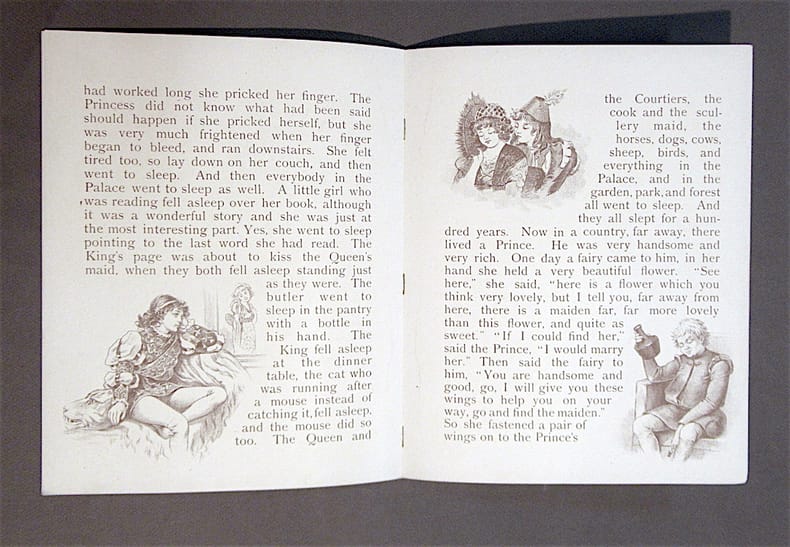 had worked long she pricked her finger. The
Princess did not know what had been said
should happen if she pricked herself, but she
was very much frightened when her finger
began to bleed, and ran downstairs. She felt
tired too, so lay down on her couch, and then
went to sleep. And then everybody in the
Palace went to sleep as well. A little girl who
was reading fell asleep over her book, although
it was a wonderful story and she was just at
the most interesting part. Yes, she went to sleep
pointing to the last word she had read. The
King's page was about to kiss the Queen's
maid, when they both fell asleep standing just
as they were. The
butler went to
sleep in the pantry
with a bottle in
his hand. The
King fell asleep
at the dinner
table, the cat who
was running after
a mouse instead of
catching it, fell asleep,
and the mouse did so
too. The Queen and
the Courtiers, the
cook and the scul-
lery maid, the
horses, dogs, cows,
sheep, birds, and
everything in the
Palace, and in the
garden, park, and forest
all went to sleep. And
they all slept for a hun-
dred years. Now in a country, far away, there
lived a Prince. He was very handsome and
very rich. One day a fairy came to him, in her
hand she held a very beautiful flower. "See
here," she said, "here is a flower which you
think very lovely, but I tell you, far away from
here, there is a maiden far, far more lovely
than this flower, and quite as
sweet." "If I could find her,"
said the Prince, "I would marry
her." Then said the fairy to
him, "You are handsome and
good, go, I will give you these
wings to help you on your
way, go and find the maiden."
So she fastened a pair of
wings on to the Prince's